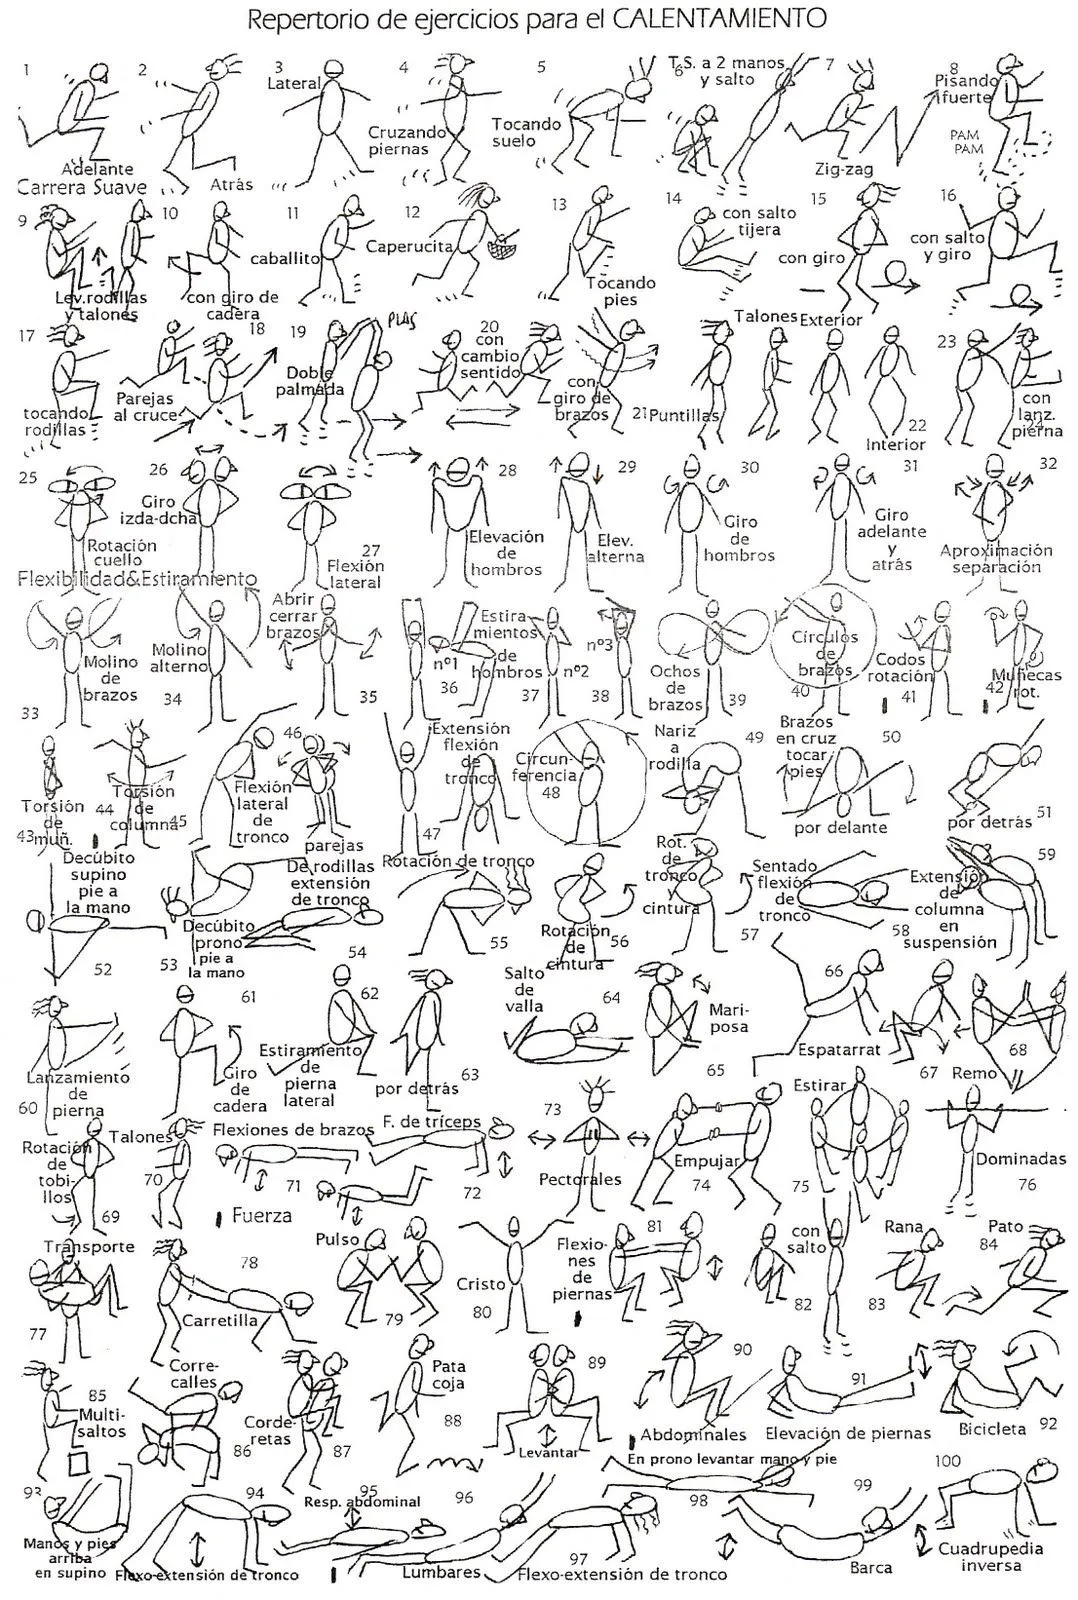 Repertorio de ejercicios para el CALENTAMIENTO
1
2
3
Lateral
4
Cruzando
piernas
5
Tocando
suelo
6
T.S. a 2 manos
y salto
7
Zig-zag
8
Pisando
fuerte
PAM
PAM
Adelante
Carrera Suave
Atrás
9
Lev.rodillas
y talones
10
con giro de
cadera
11
caballito
12
Caperucita
13
Tocando
pies
14
con salto
tijera
15
con giro
16
con salto
y giro
17
tocando
rodillas
18
Parejas
al cruce
19
Doble
palmada
PLAS
20
con
cambio
sentido
con
giro de
brazos
21
Puntillas
Talones
Exterior
22
Interior
23
con
lanz.
pierna
24
25
Rotación
cuello
26
Giro
izda-dcha
27
Flexión
lateral
28
Elevación
de
hombros
29
Elev.
alterna
30
Giro
de
hombros
31
Giro
adelante
y
atrás
32
Aproximación
separación
Flexibilidad&Estiramiento
33
Molino
de
brazos
34
Molino
alterno
35
Abrir
cerrar
brazos
36
nº1
Estira-
mientos
de
hombros
37
nº2
38
nº3
39
Ochos
de
brazos
40
Círculos
de
brazos
41
Codos
rotación
42
Muñecas
rot.
43
Torsión
de
muñ.
44
Torsión
de
columna
45
Flexión
lateral
de
tronco
46
parejas
47
Extensión
flexión
de
tronco
48
Circun-
ferencia
49
Nariz
a
rodilla
50
Brazos
en cruz
tocar
pies
por delante
51
por detrás
52
Decúbito
supino
pie a
la mano
53
Decúbito
prono
pie a
la mano
54
De rodillas
extensión
de tronco
55
Rotación de tronco
56
Rotación
de
cintura
57
Rot.
de
tronco
y
cintura
58
Sentado
flexión
de
tronco
59
Extensión
de
columna
en
suspensión
60
Lanzamiento
de
pierna
61
Giro
de
cadera
62
Estiramiento
de
pierna
lateral
63
por detrás
64
Salto
de
valla
65
Mari-
posa
66
Espatarrat
67
68
Remo
69
Rotación
de
tobi-
llos
70
Talones
71
Flexiones de brazos
72
F. de tríceps
Fuerza
73
Pectorales
74
Empujar
75
Estirar
76
Dominadas
77
Transporte
78
Carretilla
79
Pulso
80
Cristo
81
Flexio-
nes
de
piernas
82
con
salto
83
Rana
84
Pato
85
Multi-
saltos
86
Corre-
calles
87
Corde-
retas
88
Pata
coja
89
Levantar
90
Abdominales
91
Elevación de piernas
92
Bicicleta
93
Manos y pies
arriba
en supino
94
Flexo-extensión de tronco
95
Resp. abdominal
96
Lumbares
97
Flexo-extensión de tronco
98
En prono levantar mano y pie
99
Barca
100
Cuadrupedia
inversa